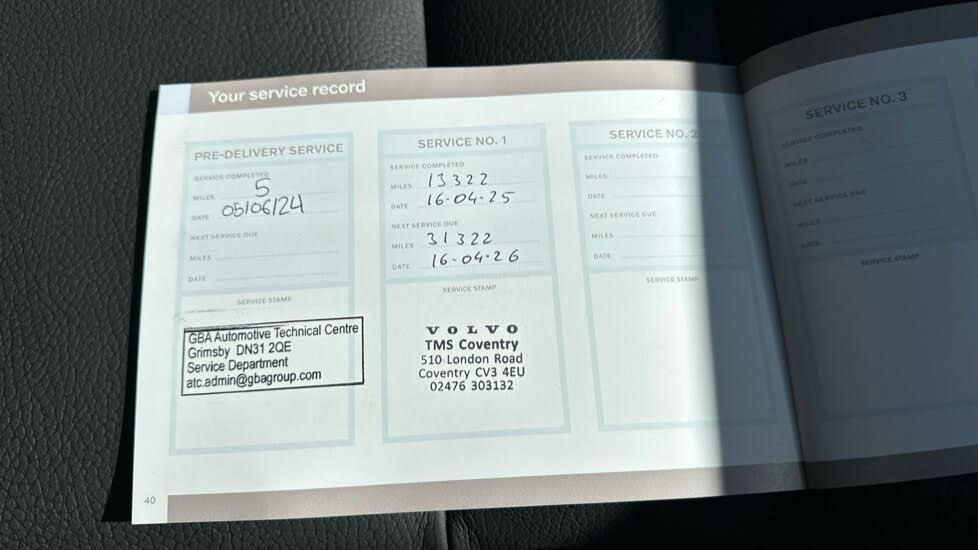 Your service record
PRE-DELIVERY SERVICE
SERVICE COMPLETED
MILES 5
DATE 05/06/24
NEXT SERVICE DUE
MILES
DATE
SERVICE STAMP
GBA Automotive Technical Centre
Grimsby DN31 2QE
Service Department
atc.admin@gbagroup.com
SERVICE NO. 1
SERVICE COMPLETED
MILES 13322
DATE 16-04-25
NEXT SERVICE DUE
MILES 31322
DATE 16-04-26
SERVICE STAMP
VOLVO
TMS Coventry
510 London Road
Coventry CV3 4EU
02476 303132
SERVICE NO. 2
SERVICE COMPLETED
MILES
DATE
NEXT SERVICE DUE
MILES
DATE
SERVICE STAMP
SERVICE NO. 3
SERVICE COMPLETED
MILES
DATE
NEXT SERVICE DUE
MILES
DATE
SERVICE STAMP
40